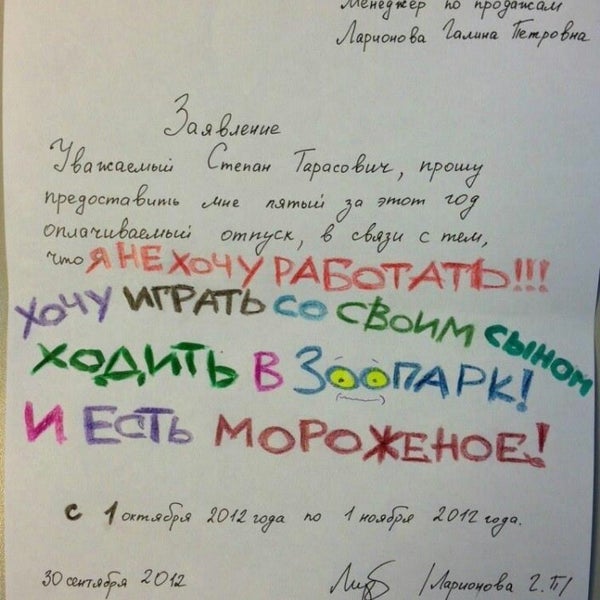 Менеджер по продажам
Ларионова Галина Петровна
Заявление
Уважаемый Степан Тарасович, прошу
предоставить мне пятый за этот год
оплачиваемый отпуск, в связи с тем,
что Я НЕ ХОЧУ РАБОТАТЬ!!!
ХОЧУ ИГРАТЬ СО СВОИМ СЫНОМ
ХОДИТЬ В ЗООПАРК!
И ЕСТЬ МОРОЖЕНОЕ!
с 1 октября 2012 года по 1 ноября 2012 года.
30 сентября 2012 Лар /Ларионова Г.П/